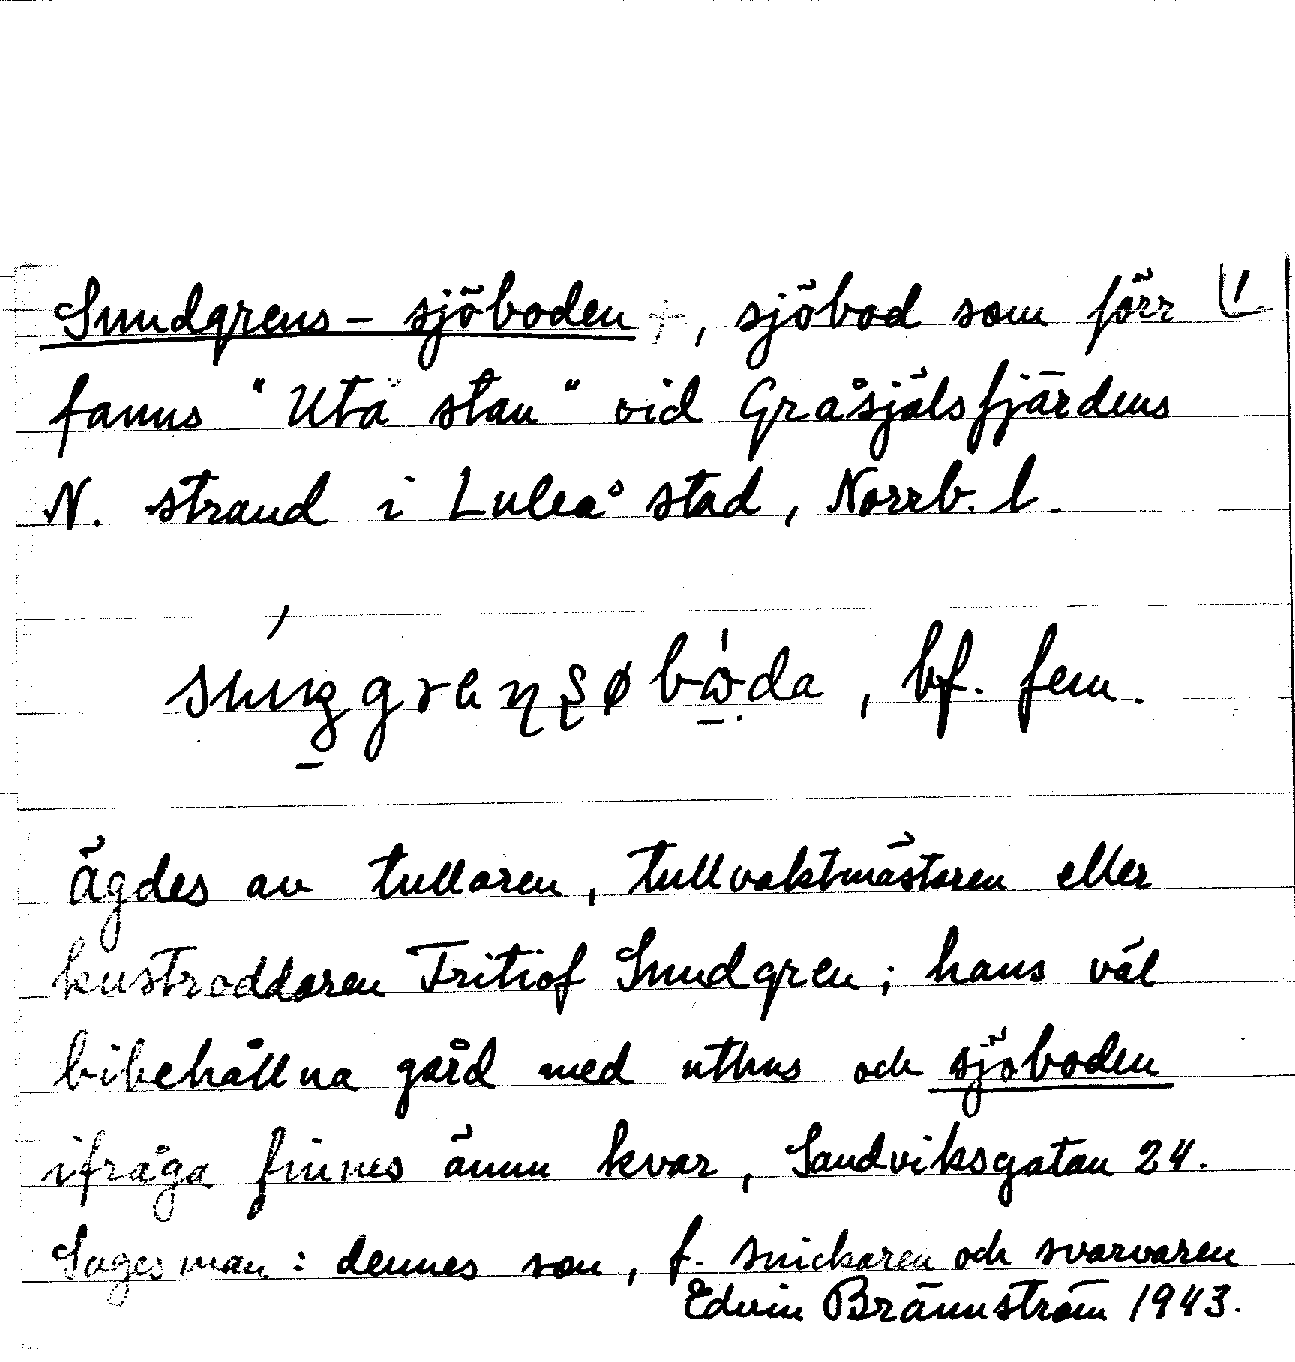 Sundgrens-sjöboden +, sjöbod som förr
fanns "Utå stan" vid Gråsjälsfjärdens
N. strand i Luleå stad, Norrb. l.
, bf. fem.
Ägdes av tullaren, tullvaktmästaren eller
kustroddaren Fritiof Sundgren; hans väl
bibehållna gård med uthus och sjöboden
ifråga finnes ännu kvar, Sandviksgatan 24.
Sagesman: dennes son, f. snickaren och svarvaren
Edvin Brännström 1943.